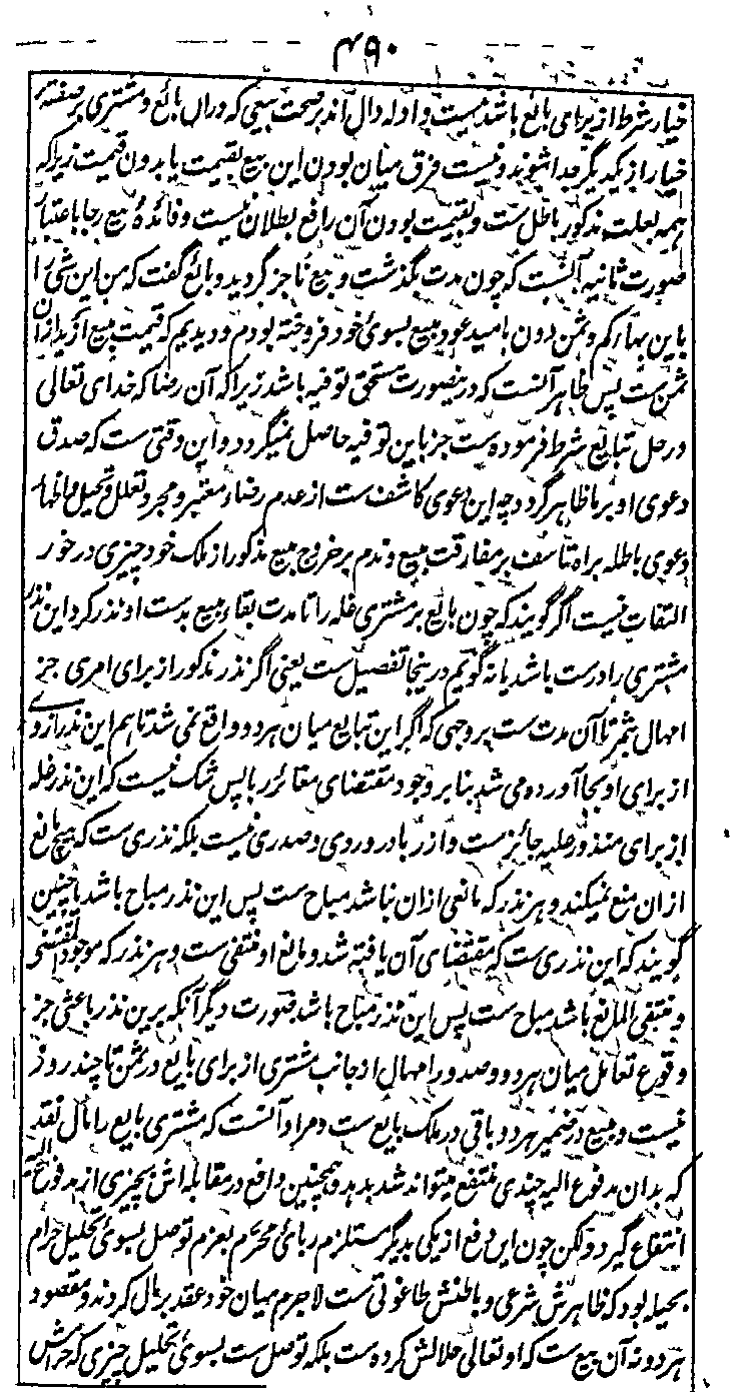 ۴۹۰
خیار شرط از برای بائع باشد نیست و ادله دال اند بر صحت بیعی که دران بائع و مشتری بر صفت
خیار از یکدیگر جدا شوند و نیست فرق میان بودن این بیع بقیمت یا بدون قیمت زیراکه
همه بعلت مذکور باطل ست و بقیمت بودن آن رافع بطلان نیست و فائدهٔ بیع رجا باعتبار
صورت ثانیه آنست که چون مدت بگذشت و بیع ناجز گردید و بائع گفت که من این شی را
باین بهار کم و ثمن دون بامید عود مبیع بسوی خود فروخته بودم و دیدیم که قیمت مبیع ازید ازان
ثمن ست پس ظاهر آنست که درینصورت مستحق توفیه باشد زیراکه آن رضا که خدای تعالی
در حل تبایع شرط فرموده ست جز باین توفیه حاصل نمیگردد و این وقتی ست که صدق
دعوی او بر ما ظاهر گردد چه این دعوی کاشف ست از عدم رضاء معتبر و مجرد تعلل و تحیل و اظهار
دعوی باطله براه تأسف بر مفارقت مبیع و ندم بر خروج مبیع مذکور از ملک خود چیزی در خور
التفات نیست اگر گویند که چون بائع بر مشتری غله را تا مدت بقاء مبیع بدست او نذر کرد این نذر
مشتری را درست باشد یا نه گویم درینجا تفصیل ست یعنی اگر نذر مذکور از برای امری جز
امهال ثمن تا آن مدت ست بر وجهی که اگر این تبایع میان هر دو واقع نمی شد تا هم این نذر از وے
از برای او بجا آورده می شد بنابر وجود مقتضای مغائر ربا پس شک نیست که این نذر غله
از برای منذور علیه جائز ست و از ربا در وردی و صدری نیست بلکه نذری ست که هیچ مانع
ازان منع نمیکند و هر نذر که مانعی ازان نباشد مباح ست پس این نذر مباح باشد یا چنین
گویند که این نذری ست که مقتضای آن یافته شد و مانع او منتفی ست و هر نذر که موجود المقتضی
و منتفی المانع باشد مباح ست پس این نذر مباح باشد صورت دیگر آنکه برین نذر باعثی جز
وقوع تعامل میان هر دو و صدور امهال از جانب مشتری از برای بایع در ثمن تا چند روز
نیست و مبیع در ضمیر هر دو باقی در ملک بایع ست و مراد آنست که مشتری بایع را مال نقد
که بدان مدفوع الیه چندی منتفع میتواند شد بدهد و همچنین دافع در مقابله اش بچیزی از مدفوع الیه
انتفاع گیرد و لکن چون این دفع از یکی بدیگر مستلزم ربای محرم بعزم توصل بسوی تحلیل حرام
بحیله بود که ظاهرش شرعی و باطنش طاغوتی ست لاجرم میان خود عقد بر مال کردند و مقصود
هر دو نه آن بیع ست که او تعالی حلالش کرده ست بلکه توصل ست بسوی تحلیل چیزی که حرامش